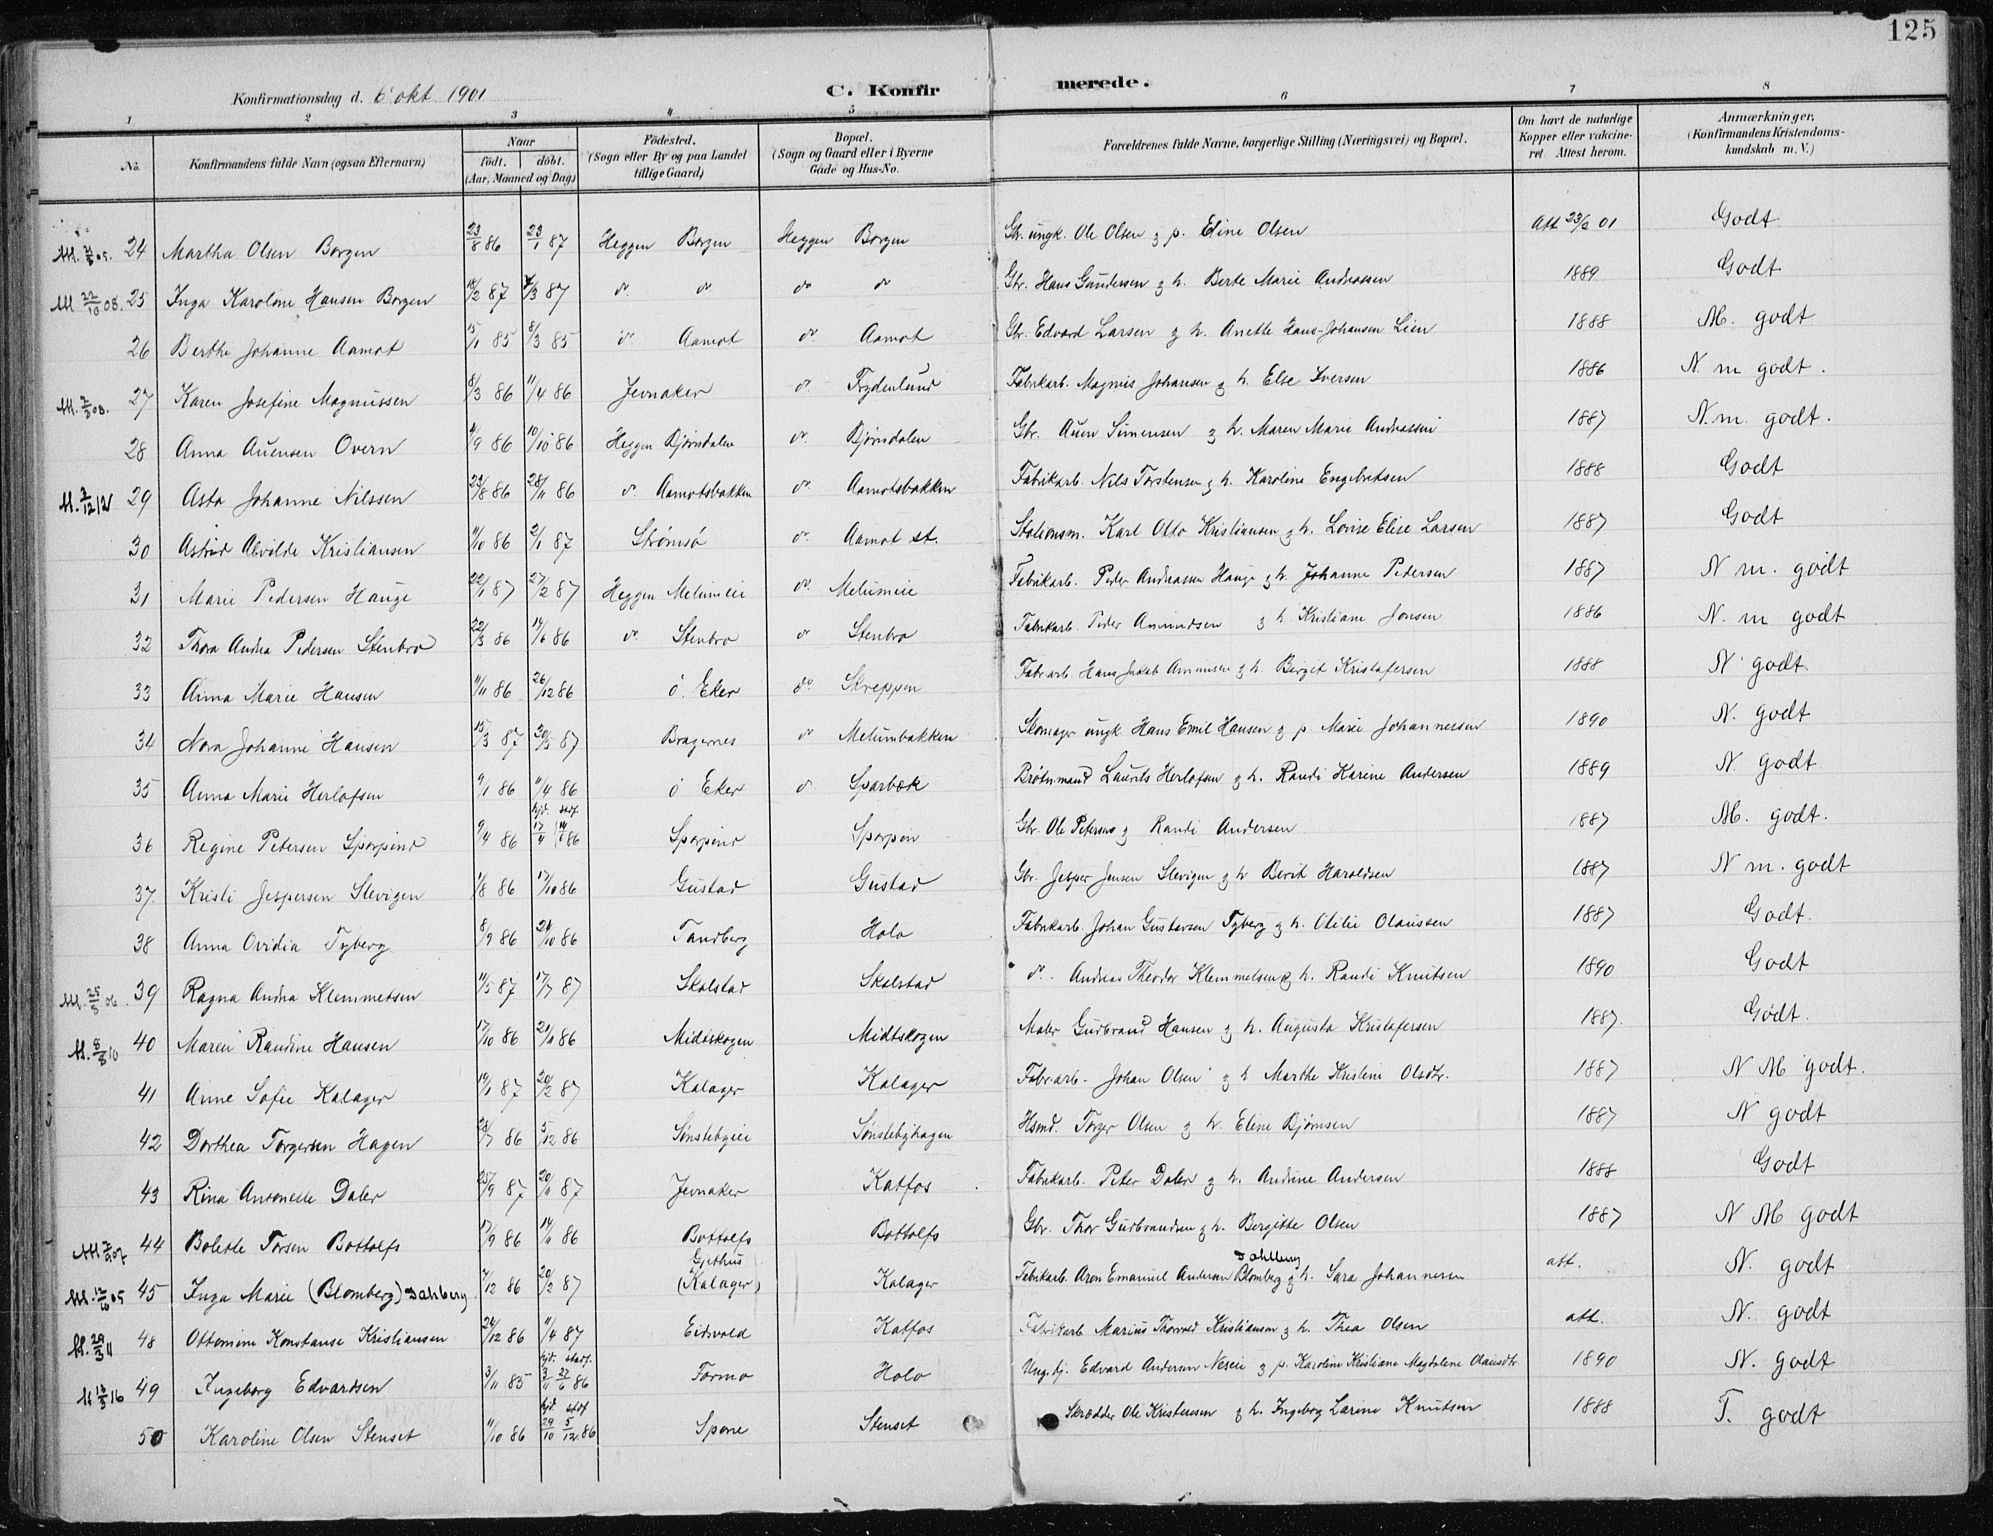 125
Konfirmationsdag d. 6' okt 1901 C. Konfirmerede.
1 2 3 4 5 6 7 8
No. Konfirmandens fulde Navn (ogsaa Efternavn) Naar født. døbt. (Aar, Maaned og Dag) Fødested. (Sogn eller By og paa Landet tillige Gaard) Bopæl. (Sogn og Gaard eller i Byerne Gade og Hus-No. Forældrenes fulde Navne, borgerlige Stilling (Næringsvei) og Bopæl. Om havt de naturlige Kopper eller vakcineret. Attest herom. Anmærkninger. (Konfirmandens Kristendomskundskab m. V.)
24 Martha Olsen Borgen 23/8 86 23/1 87 Heggen Borgen Heggen Borgen Gbr. ungk. Ole Olsen og p. Eline Olsen Att 23/2 01 Godt
M 22/10 08. 25 Inga Karoline Hansen Borgen 18/2 87 /3 87 do do do do Gbr. Hans Gundersen og h. Berte Marie Andreassen 1889 Godt
26 Berthe Johanne Aamot 15/1 85 8/3 85 do Aamot do Aamot Gbr. Edvard Larsen og h. Anette Hans-Johansen Lien 1888 M. godt
27 Karen Josefine Magnussen 8/3 86 11/4 86 Jevnaker do Frydenlund Fabrikarb. Magnus Johansen og h. Else Iversen 1886 N. m godt.
28 Anna Auensen Overn /9 86 10/10 86 Heggen Bjørnsdalen do Bjørnsdalen Gbr. Auen Simensen og h. Maren Marie Andreassen 1887 N. m. godt.
M. 7/12 12 29 Asta Johanne Nilssen 23/8 86 28/11 86 do Aamotsbakken do Aamotsbakken Fabrikarb. Nils Torstensen og h. Karoline Engebretsen 1888 Godt
30 Astrid Alvilde Kristiansen 11/10 86 2/1 87 Strømsø do Aamot st. Stationsm. Karl Otto Kristiansen og h. Lovise Elise Larsen 1887 Godt
31 Marie Pedersen Hauge 22/1 87 27/2 87 Heggen Melumeie do Melumeie Fabrikarb. Peder Andreassen Hauge og h. Johanne Pedersen 1887 N m. godt
32 Thora Andrea Pedersen Stenbro 22/3 86 14/6 86 do Stenbro do Stenbro Fabrikarb. Peder Amundsen og h Kristiane Jonsen 1886 N. m godt
33 Anna Marie Hansen 11/11 86 26/12 86 ø. Eker do Skreppen Fabr.arb Hans Jakob Amundsen og h. Berget Kristofersen 1888 N godt.
34 Nora Johanne Hansen 15/3 87 30/5 87 Bragernes do Melumbakken Skomager ungk Hans Emil Hansen og p Marie Johannessen 1890 N. godt
35 Anna Marie Herlofsen 9/1 86 11/4 86 ø Eker do Sparbæk Brøtnmand Laurits Herlofsen og h. Randi Karine Andersen 1889 N godt
36 Regine Petersen Sporpind 9/4 86 hjd. 17/4 stadf 14/6 86 Sporpind Sporpin Gbr. Ole Petersen og Randi Andersen 1887 M. godt.
37. Kristi Jespersen Slevigen 1/8 86 17/10 86 Gustad Gustad Gbr. Jesper Jensen Slevigen og h Berit Haroldsen 1887 N m. godt
38 Anna Ovidia Tyberg 8/9 86 24/10 86 Tandberg Holo Fabrikarb. Johan Gustavsen Tyberg og h. Otilie Olaussen 1887 Godt.
M. 25/5 06. 39 Ragna Andrea Klemmetsen 11/5 87 17/7 87 Skalstad Skalstad do. Andreas Theodor Klemmetsen og h. Randi Knutsen 1890 Godt
M. 8/8 10 40 Maren Randine Hansen 17/10 86 21/11 86 Midtskogen Midtskogen Maler Gudbrand Hansen og h. Augusta Kristofersen 1887. Godt.
41 Anne Sofie Kalager 19/1 87 20/2 87 Kalager Kalager Fabr.arb. Johan Olsen og h Marthe Kristine Olsdtr. 1887 N M godt.
42 Dorthea Torgersen Hagen 28/7 86 5/12 86 Sønstebyeie Sønstebyhagen Hsmd. Torger Olsen og h. Eline Bjørnsen 1887 N godt
43 Rina Antonette Daler 25/9 87 20/11 87 Jevnaker Katfos Fabrikarb. Peter Daler og h. Andrine Andersen 1888 Godt
44 Bolette Torsen Bottolfs 17/9 86 14/11 86 Bottolfs Bottolfs Gbr. Thor Gudbrandsen og h. Bergitte Olsen 1887 N M godt
45 Inga Marie (Blomberg) Dahlberg 7/12 86 20/2 87 Gjethus (Kalager) Kalager Fabrikarb. Aron Emanuel Andersen Blomberg Dahlberg og h. Sara Johannesen att. N. godt
M. 29/3 11 48 Ottomine Konstanse Kristiansen 24/12 86 11/4 87 Eidsvold Katfos Fabrikarb Marius Thorvald Kristiansen og h. Thea Olsen att. N. godt
49 Ingeborg Edvardsen 3/11 85 hjd. 3/11 stadf. 27/6 86 Formo Holo Ung. Edvard Andersen Neseie og p. Karoline Kristiane Magdalene Olausdtr 1890 N. godt
50 Karoline Olsen Stenset 11/10 86 hjd. 29/10 stadf 5/12 86 Spone Stenset Skrædder Ole Kristensen og h. Ingeborg Larine Knutsen 1888 T. godt